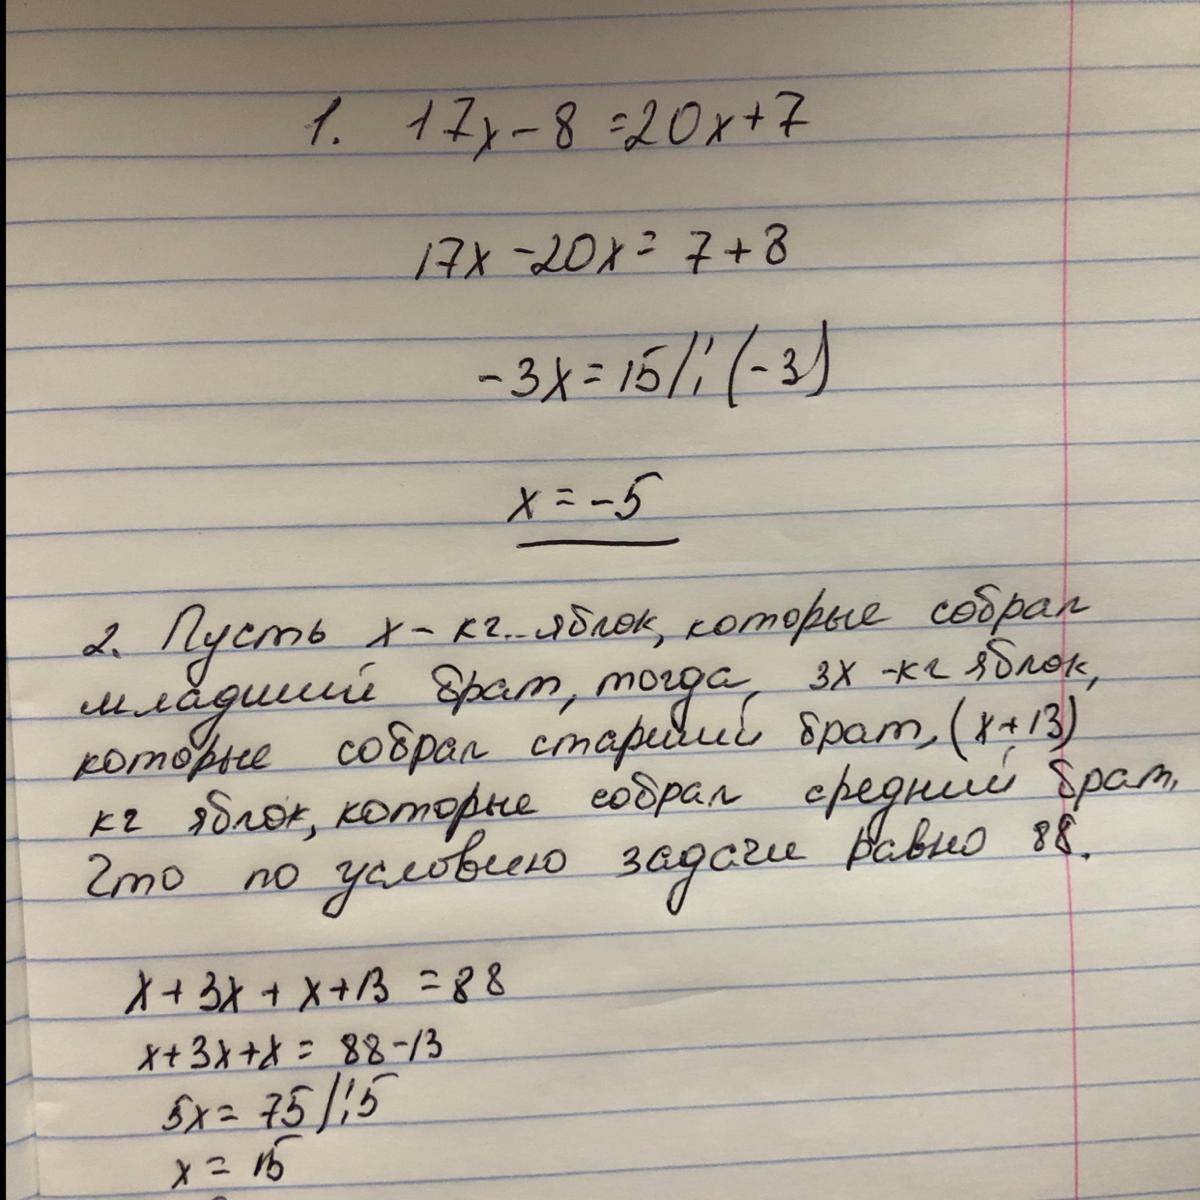 1. 17x - 8 = 20x + 7
17x - 20x = 7 + 8
-3x = 15 /: (-3)
x = -5
2. Пусть x - кг яблок, которые собрал
младший брат, тогда 3x - кг яблок,
которые собрал старший брат, (x + 13)
кг яблок, которые собрал средний брат.
Что по условию задачи равно 88.
x + 3x + x + 13 = 88
x + 3x + x = 88 - 13
5x = 75 /: 5
x = 15